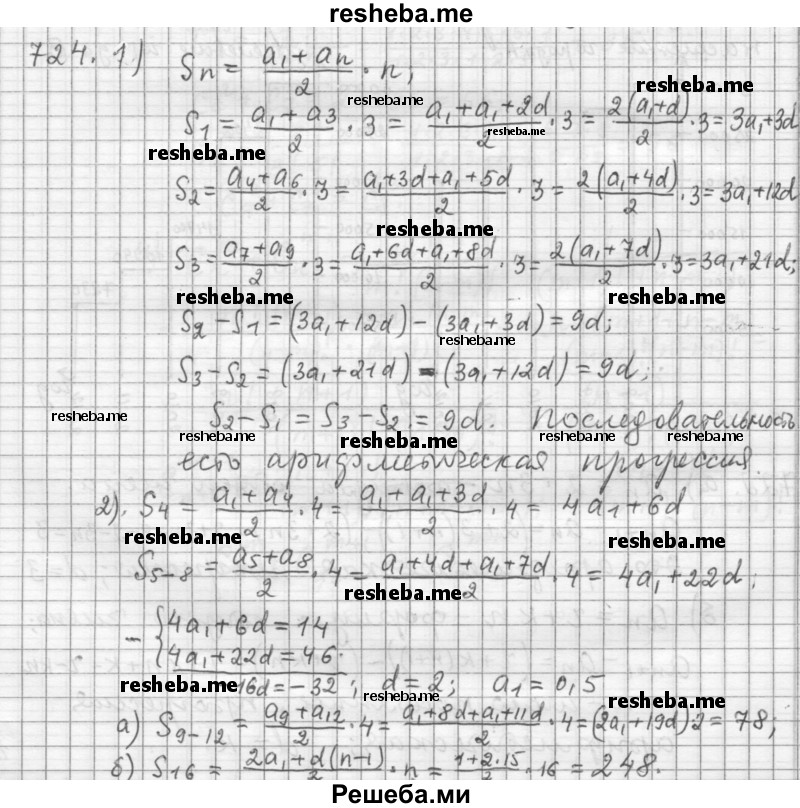 resheba.me
724. 1) Sn = (a₁ + an)/2 · n;
resheba.me resheba.me
S₁ = (a₁ + a₃)/2 · 3 = (a₁ + a₁ + 2d)/2 · 3 = 2(a₁+d)/2 · 3 = 3a₁+3d
resheba.me resheba.me
S₂ = (a₄+a₆)/2 · 3 = (a₁+3d+a₁+5d)/2 · 3 = 2(a₁+4d)/2 · 3 = 3a₁+12d
resheba.me
S₃ = (a₇+a₉)/2 · 3 = (a₁+6d+a₁+8d)/2 · 3 = 2(a₁+7d)/2 · 3 = 3a₁+21d;
resheba.me resheba.me
S₂ – S₁ = (3a₁+12d) – (3a₁+3d) = 9d;
resheba.me
S₃ – S₂ = (3a₁+21d) – (3a₁+12d) = 9d;
resheba.me
S₂ – S₁ = S₃ – S₂ = 9d. Последовательность
resheba.me resheba.me resheba.me resheba.me
есть арифметическая прогрессия.
2). S₄ = (a₁ + a₄)/2 · 4 = (a₁ + a₁ + 3d)/2 · 4 = 4a₁ + 6d
resheba.me resheba.me
S₅₋₈ = (a₅+a₈)/2 · 4 = (a₁+4d+a₁+7d)/2 · 4 = 4a₁+22d;
resheba.me
– { 4a₁+6d = 14
4a₁+22d = 46.
resheba.me resheba.me resheba.me
–16d = –32; d = 2; a₁ = 0,5
а) S₉₋₁₂ = (a₉+a₁₂)/2 · 4 = (a₁+8d+a₁+11d)/2 · 4 = (2a₁+19d)·2 = 78;
б) S₁₆ = (2a₁+d(n–1))/2 · n = (1+2·15)/2 · 16 = 248.
Решеба.ми